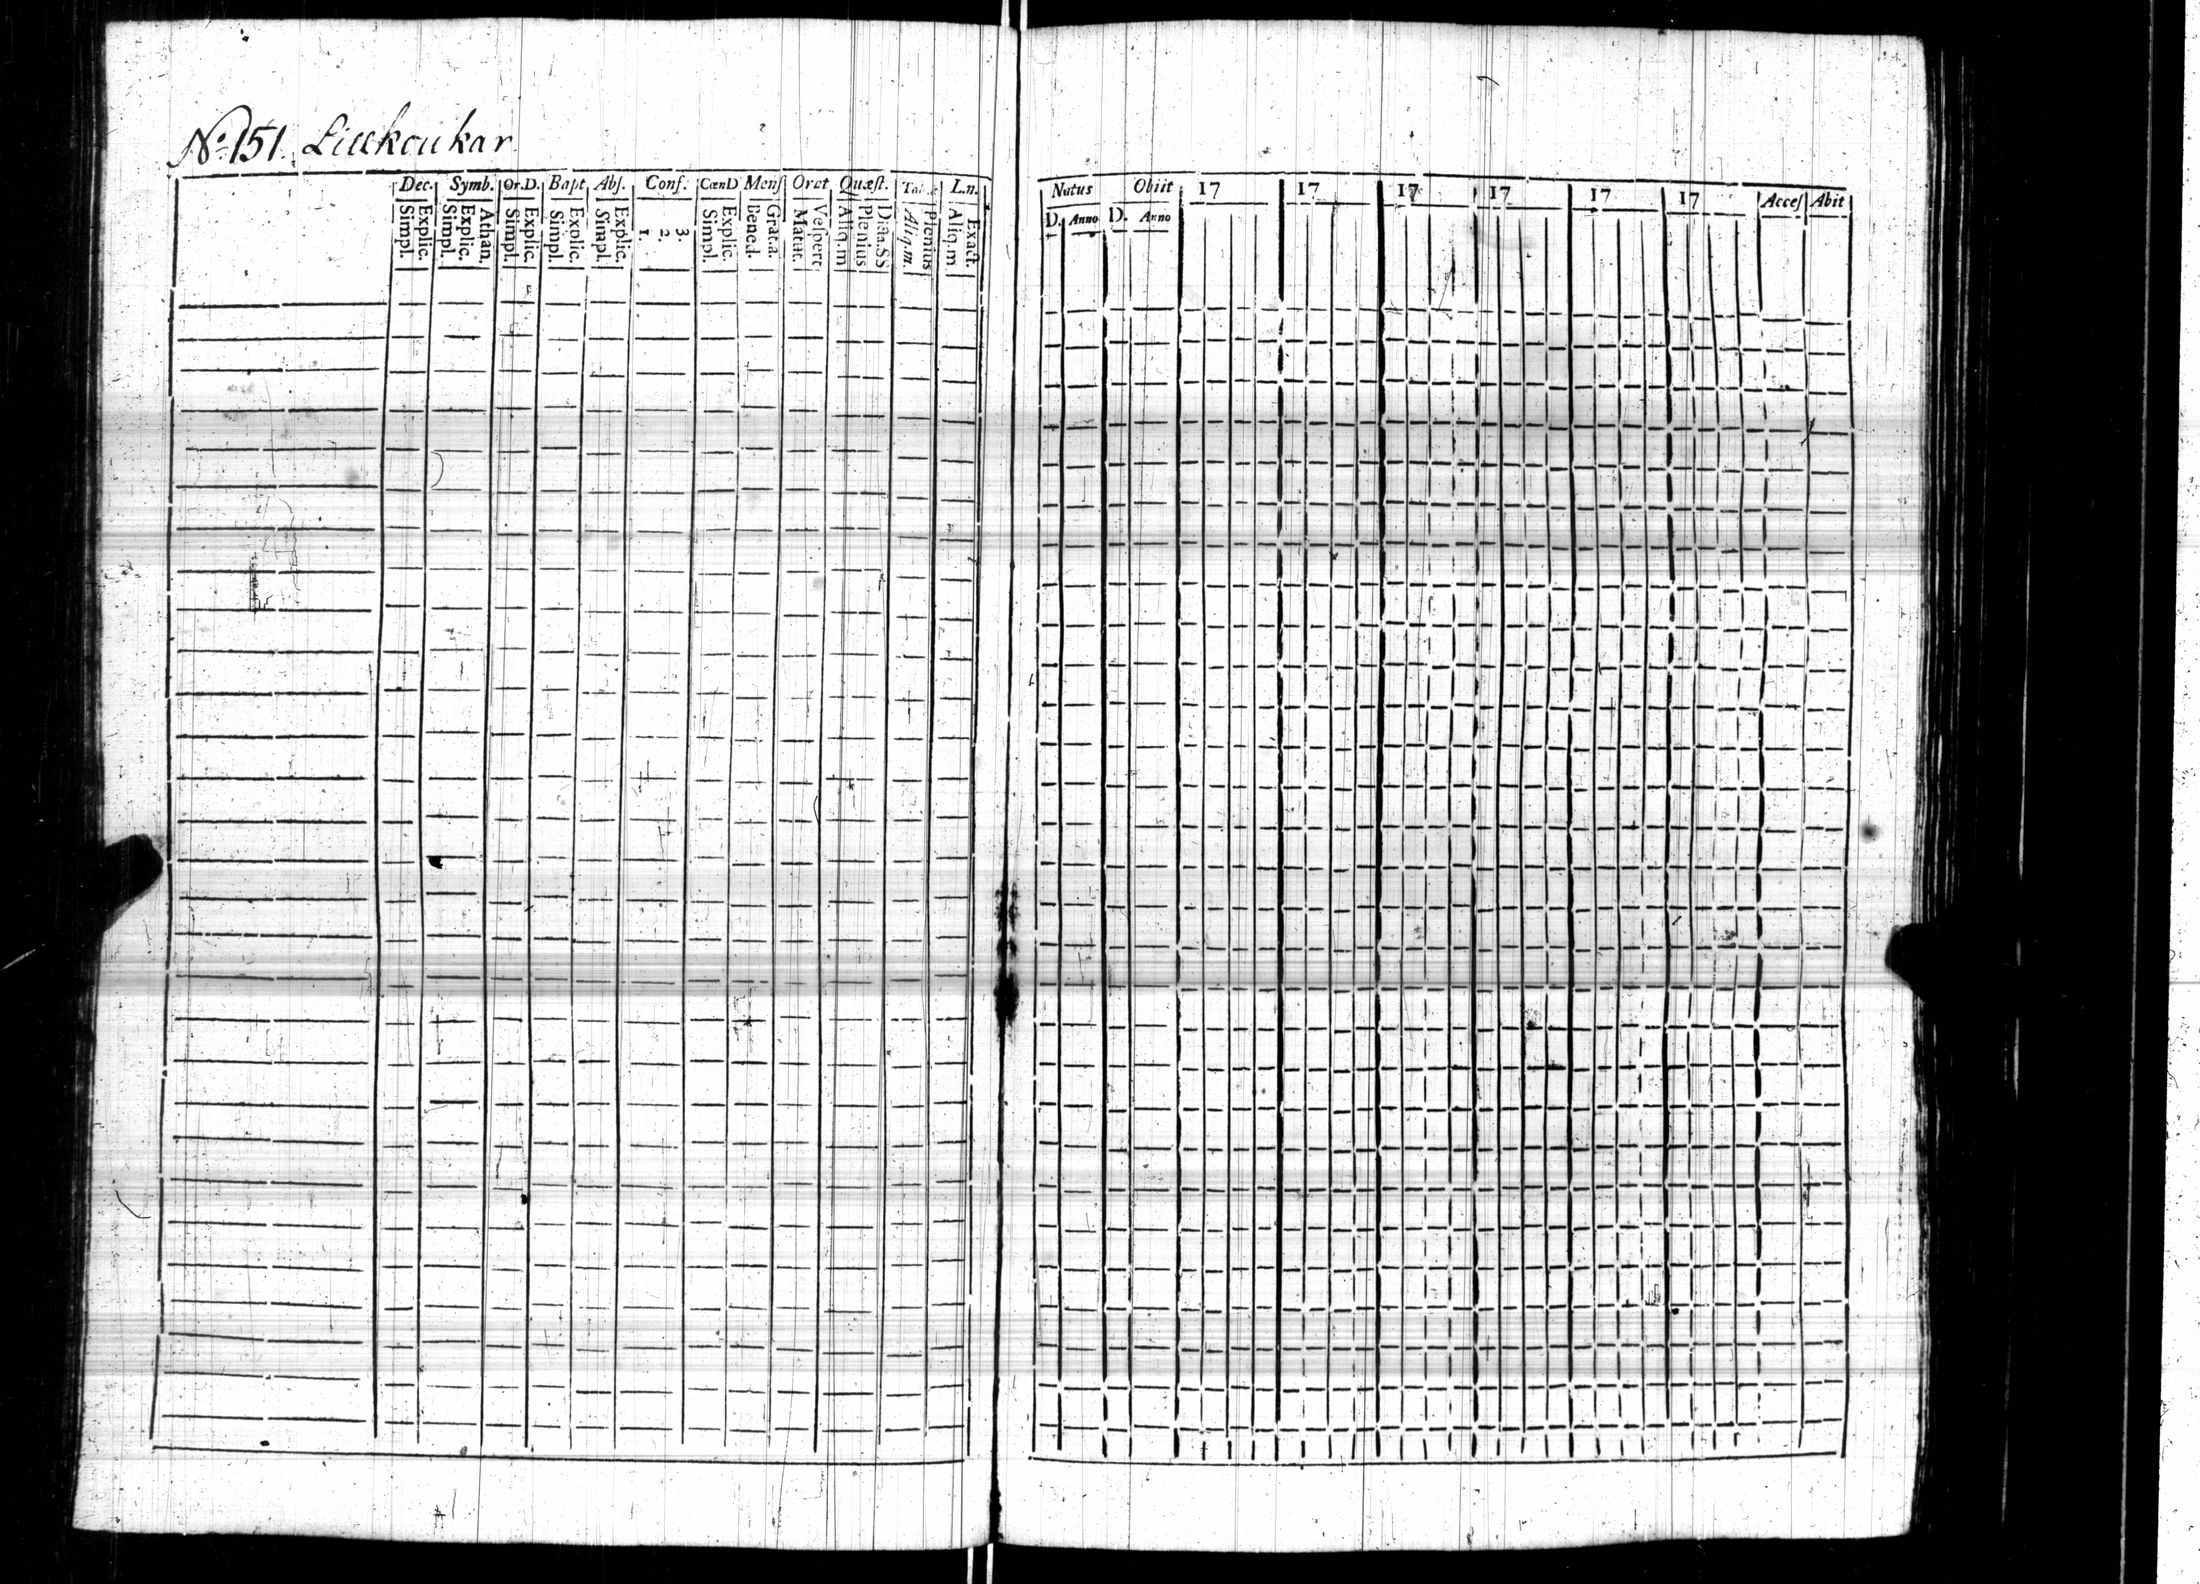 No 151. Liukoukar
Dec. Symb. Or.D. Bapt Abs. Conf. CœnD Mens Orat Quæst. L.n.
Simpl. Explic. Simpl. Explic. Athan. Simpl. Explic. Simpl. Explic. Simpl. Explic. 1. 2. 3. Simpl. Explic. Bened. Grat.a. Matut. Vespert Aliq.m Plenius Aliq.m. Plenius Aliq.m Exact.
Natus Obiit 17 17 17 17 17 17 Acceſ Abit
D. Anno D. Anno